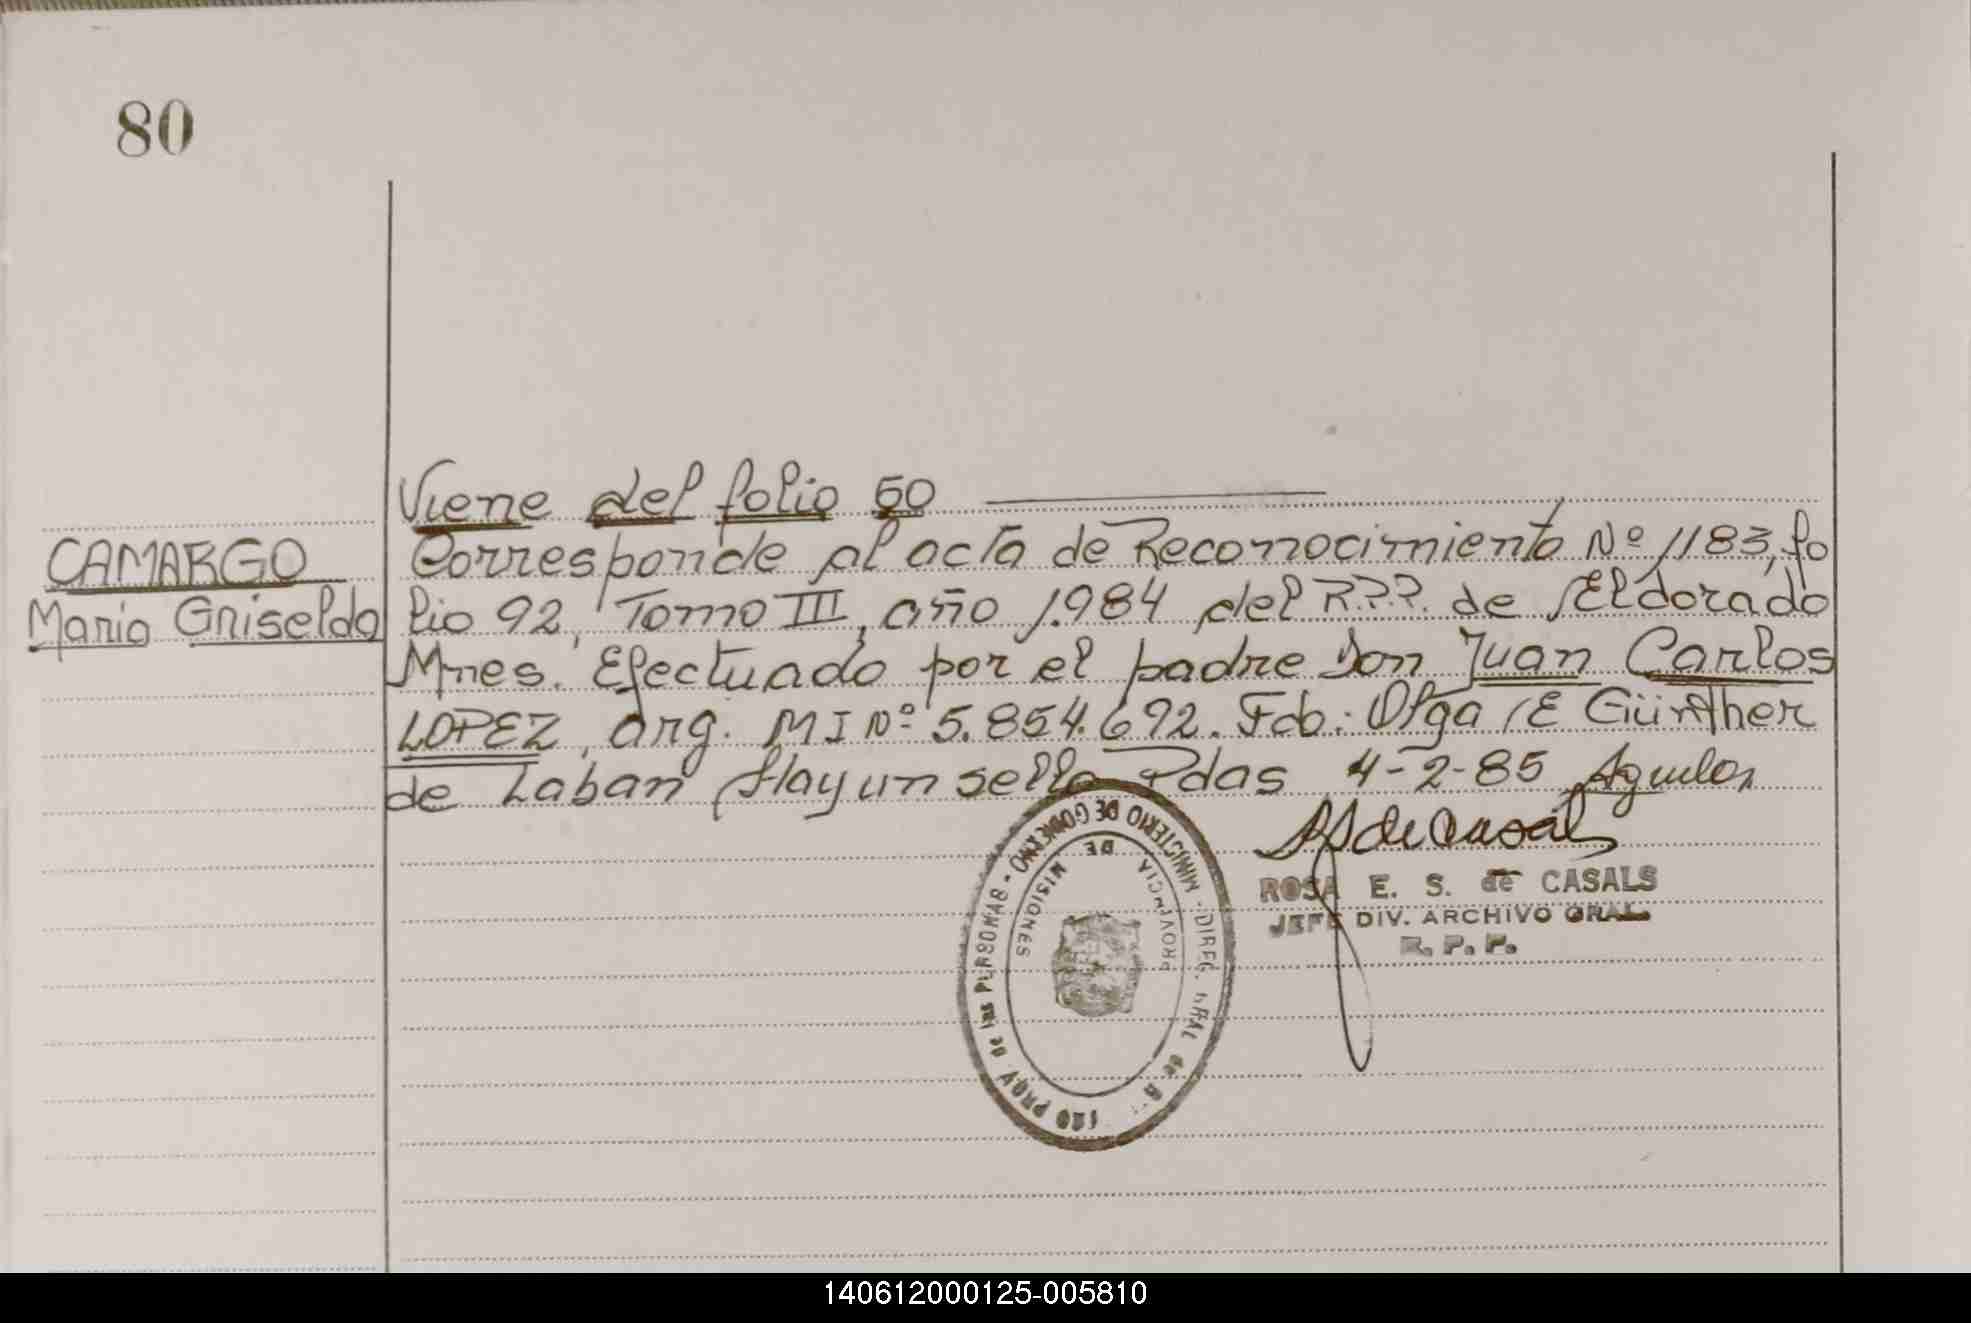 80
Viene del folio 50
CAMARGO
Maria Griselda
Corresponde al acta de Reconocimiento Nº 1183, fo
lio 92, Tomo III, año 1.984 del R.P.P. de Eldorado
Mnes. Efectuado por el padre Don Juan Carlos
LOPEZ, arg. MI Nº 5.854.692. Fdo.: Olga E Günther
de Laban Hay un sello Pdas 4-2-85
ROSA E. S. de CASALS
JEFE DIV. ARCHIVO GRAL.
R. P. P.
MINISTERIO DE GOBIERNO - DIREC. GRAL de
PROV de las PERSONAS
PROVINCIA DE MISIONES
140612000125-005810